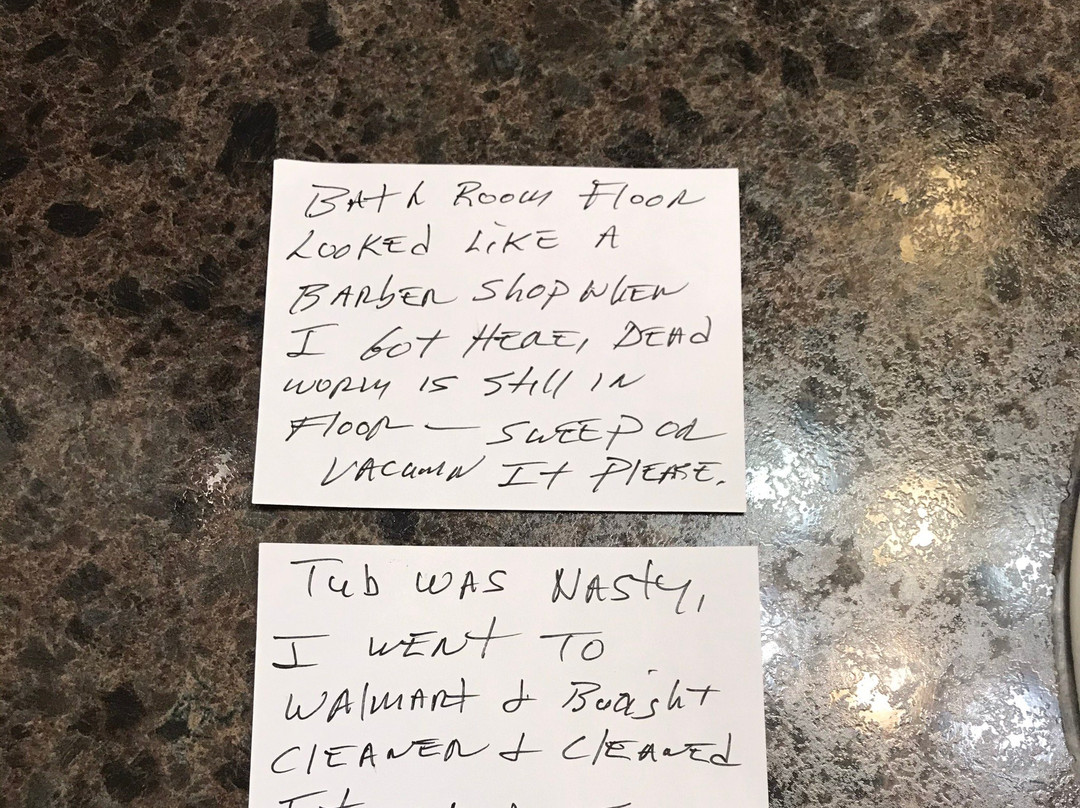 BATh ROOM FlOOR
LOOKEd LiKE A
BARbER ShOP WhEN
I GOt HERE, DEAd
WORM IS Still IN
FlOOR — SWEEP OR
VACuuM It PlEASE.
Tub WAS NAsty,
I WENt TO
WAlmARt & Bought
ClEANER & ClEANEd
It